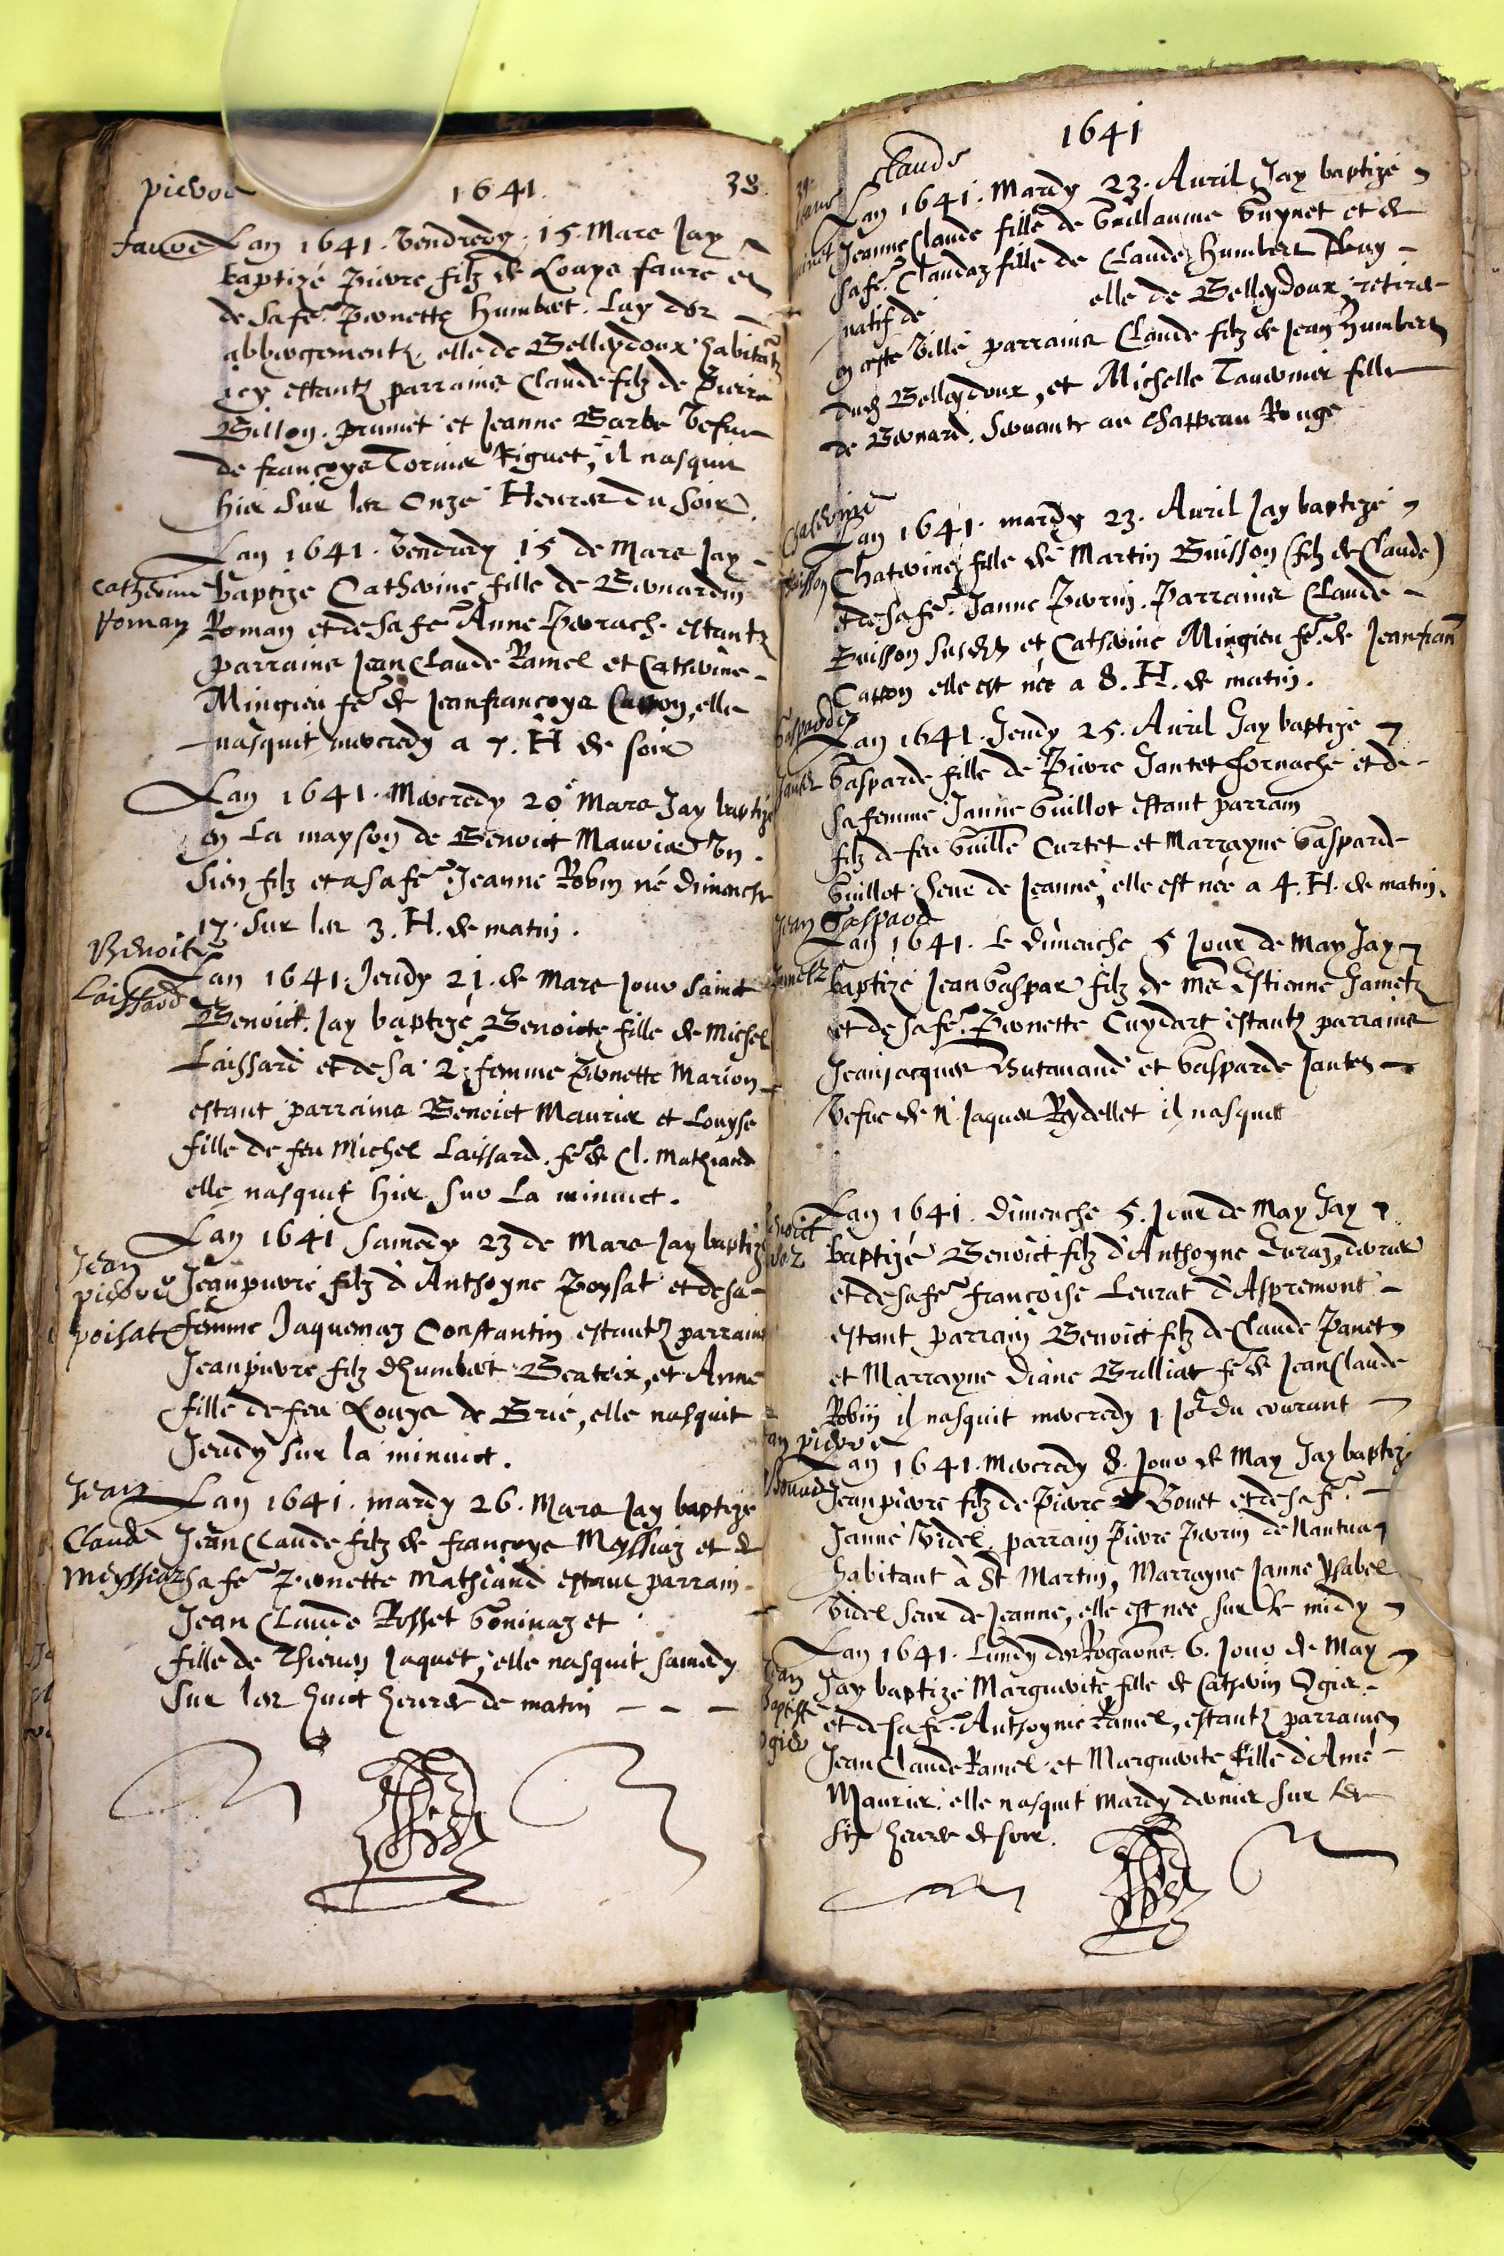 1641. 38
pierre
faure
Lan 1641. Vendredy. 15. Mars Jay
baptizé Pierre filz de Louys faure et
de sa fe. Pernette Humbert. Luy des
abbergementz, elle de Belleydoux habitantz
icy estantz parrains Claude filz de Pierre
Billon. prumit et Jeanne Barbe Vefue
de françoys Tornier Riguet, il nasquit
hier sur les Onze Heures du soir.
Catherine
Roman
Lan 1641. Vendredy 15 de Mars Jay
baptize Catherine fille de Bernardin
Roman et de sa fe Anne Perrach. estantz
parrains Jean Claude Ramel et Catherine
Mingieu fe de Jeanfrançoys Carron, elle
nasquit mercredy a 7. H de soir
Lan 1641. Mercredy 20e Mars Jay baptizé
en La mayson de Benoict Maurier Vn
sien filz et a sa fe. Jeanne Robin né dimenche
17. sur les 3. H. de matin.
Benoite
Laissard
Lan 1641. Jeudy 21. de Mars jour sainct
Benoict. Jay baptizé Benoicte fille de Michel
Laissard et de sa 2e femme Pernette Marion
estant parrains Benoict Maurier et Louyse
fille de feu Michel Laissard. fe de Cl. Mathiand
elle nasquit hier sur La minuict.
Jean
pierre
poisat
Lan 1641 Samedy 23 de Mars Jay baptizé
Jeanpierre filz d'Anthoyne Poysat et de sa
femme Jaquemaz Constantin estantz parrains
Jeanpierre filz d'humbert Beatrix, et Anne
fille de feu Louys de Brié, elle nasquit
Jeudy sur la minuict.
Jean
Claude
Meyssiaz
Lan 1641. mardy 26. Mars Jay baptizé
Jean Claude filz de françoys Meyssiaz et de
sa fe Pernette Mathiand estant parrain
Jean Claude Rosset Goninaz et
fille de Thieven Jaquet, elle nasquit samedy
sur les huict heures de matin
1641
Claude
Lan 1641. Mardy 23. Auril Jay baptizé
Jeanne Claude fille de Guillaume Guynet et de
sa fe. Claudaz fille de Claude Humbert
natif de elle de Belleydoux retires
en ceste Ville parrains Claude filz de Jean Humbert
dud Belleydoux, et Michelle Tauernier fille
de Bernard. Seruante au Chappeau Rouge
Catherine
Buisson
Lan 1641. mardy 23. Auril Jay baptizé
Chaterine fille de Martin Buisson (filz de Claude)
et de sa fe. Janne Perrin. Parrains Claude
Buisson susdit et Catherine Mingieu fe. de Jeanfran
Carron elle est née a 8. H. de matin.
Gasparde
Jantet
Lan 1641. Jeudy 25. Auril Jay baptizé
Gasparde fille de Pierre Jantet fornache et de
sa femme Janne Guillot estant parrain
filz de feu Guille Curtet et Marrayne Gasparde
Guillot seur de Jeanne, elle est née a 4. H. de matin.
Jean Gaspard
Jametz
Lan 1641. Le dimenche 5 Jour de May Jay
baptizé Jean Gaspar filz de me Estienne Jametz
et de sa fe. Pernette Cuydart estantz parrains
Jeanjacques Butauand et Gasparde Jantet
Vefue de n. Jaques Reydellet il nasquit
Benoict
Lan 1641. dimenche 5. Jour de May Jay
baptizé Benoict filz d'Anthoyne
et de sa fe. françoise Leurat d'Aspremont
estant parrain Benoict filz de Claude Panet
et Marrayne Diane Brilliat fe de Jean Claude
Robin il nasquit mercredy 1 Jor du courant
Jean pierre
Bonet
Lan 1641. Mercredy 8. Jour de May Jay baptizé
Jeanpierre filz de Pierre Bonet et de sa fe.
Janne Videl. parrain Pierre Perrin de Nantua
habitant à St Martin, Marrayne Janne Ysabel
Videl Seur de Jeanne, elle est nee sur le midy
Jean
baptiste
Ogier
Lan 1641. Lundy des Rogaons. 6. Jour de May
Jay baptizé Marguerite fille de Catherin Ogier
et de sa fe. Anthoynie Ramel, estantz parrains
Jean Claude Ramel et Marguerite fille d'Amé
Maurier. elle nasquit mardy dernier sur les
six heures de soir.